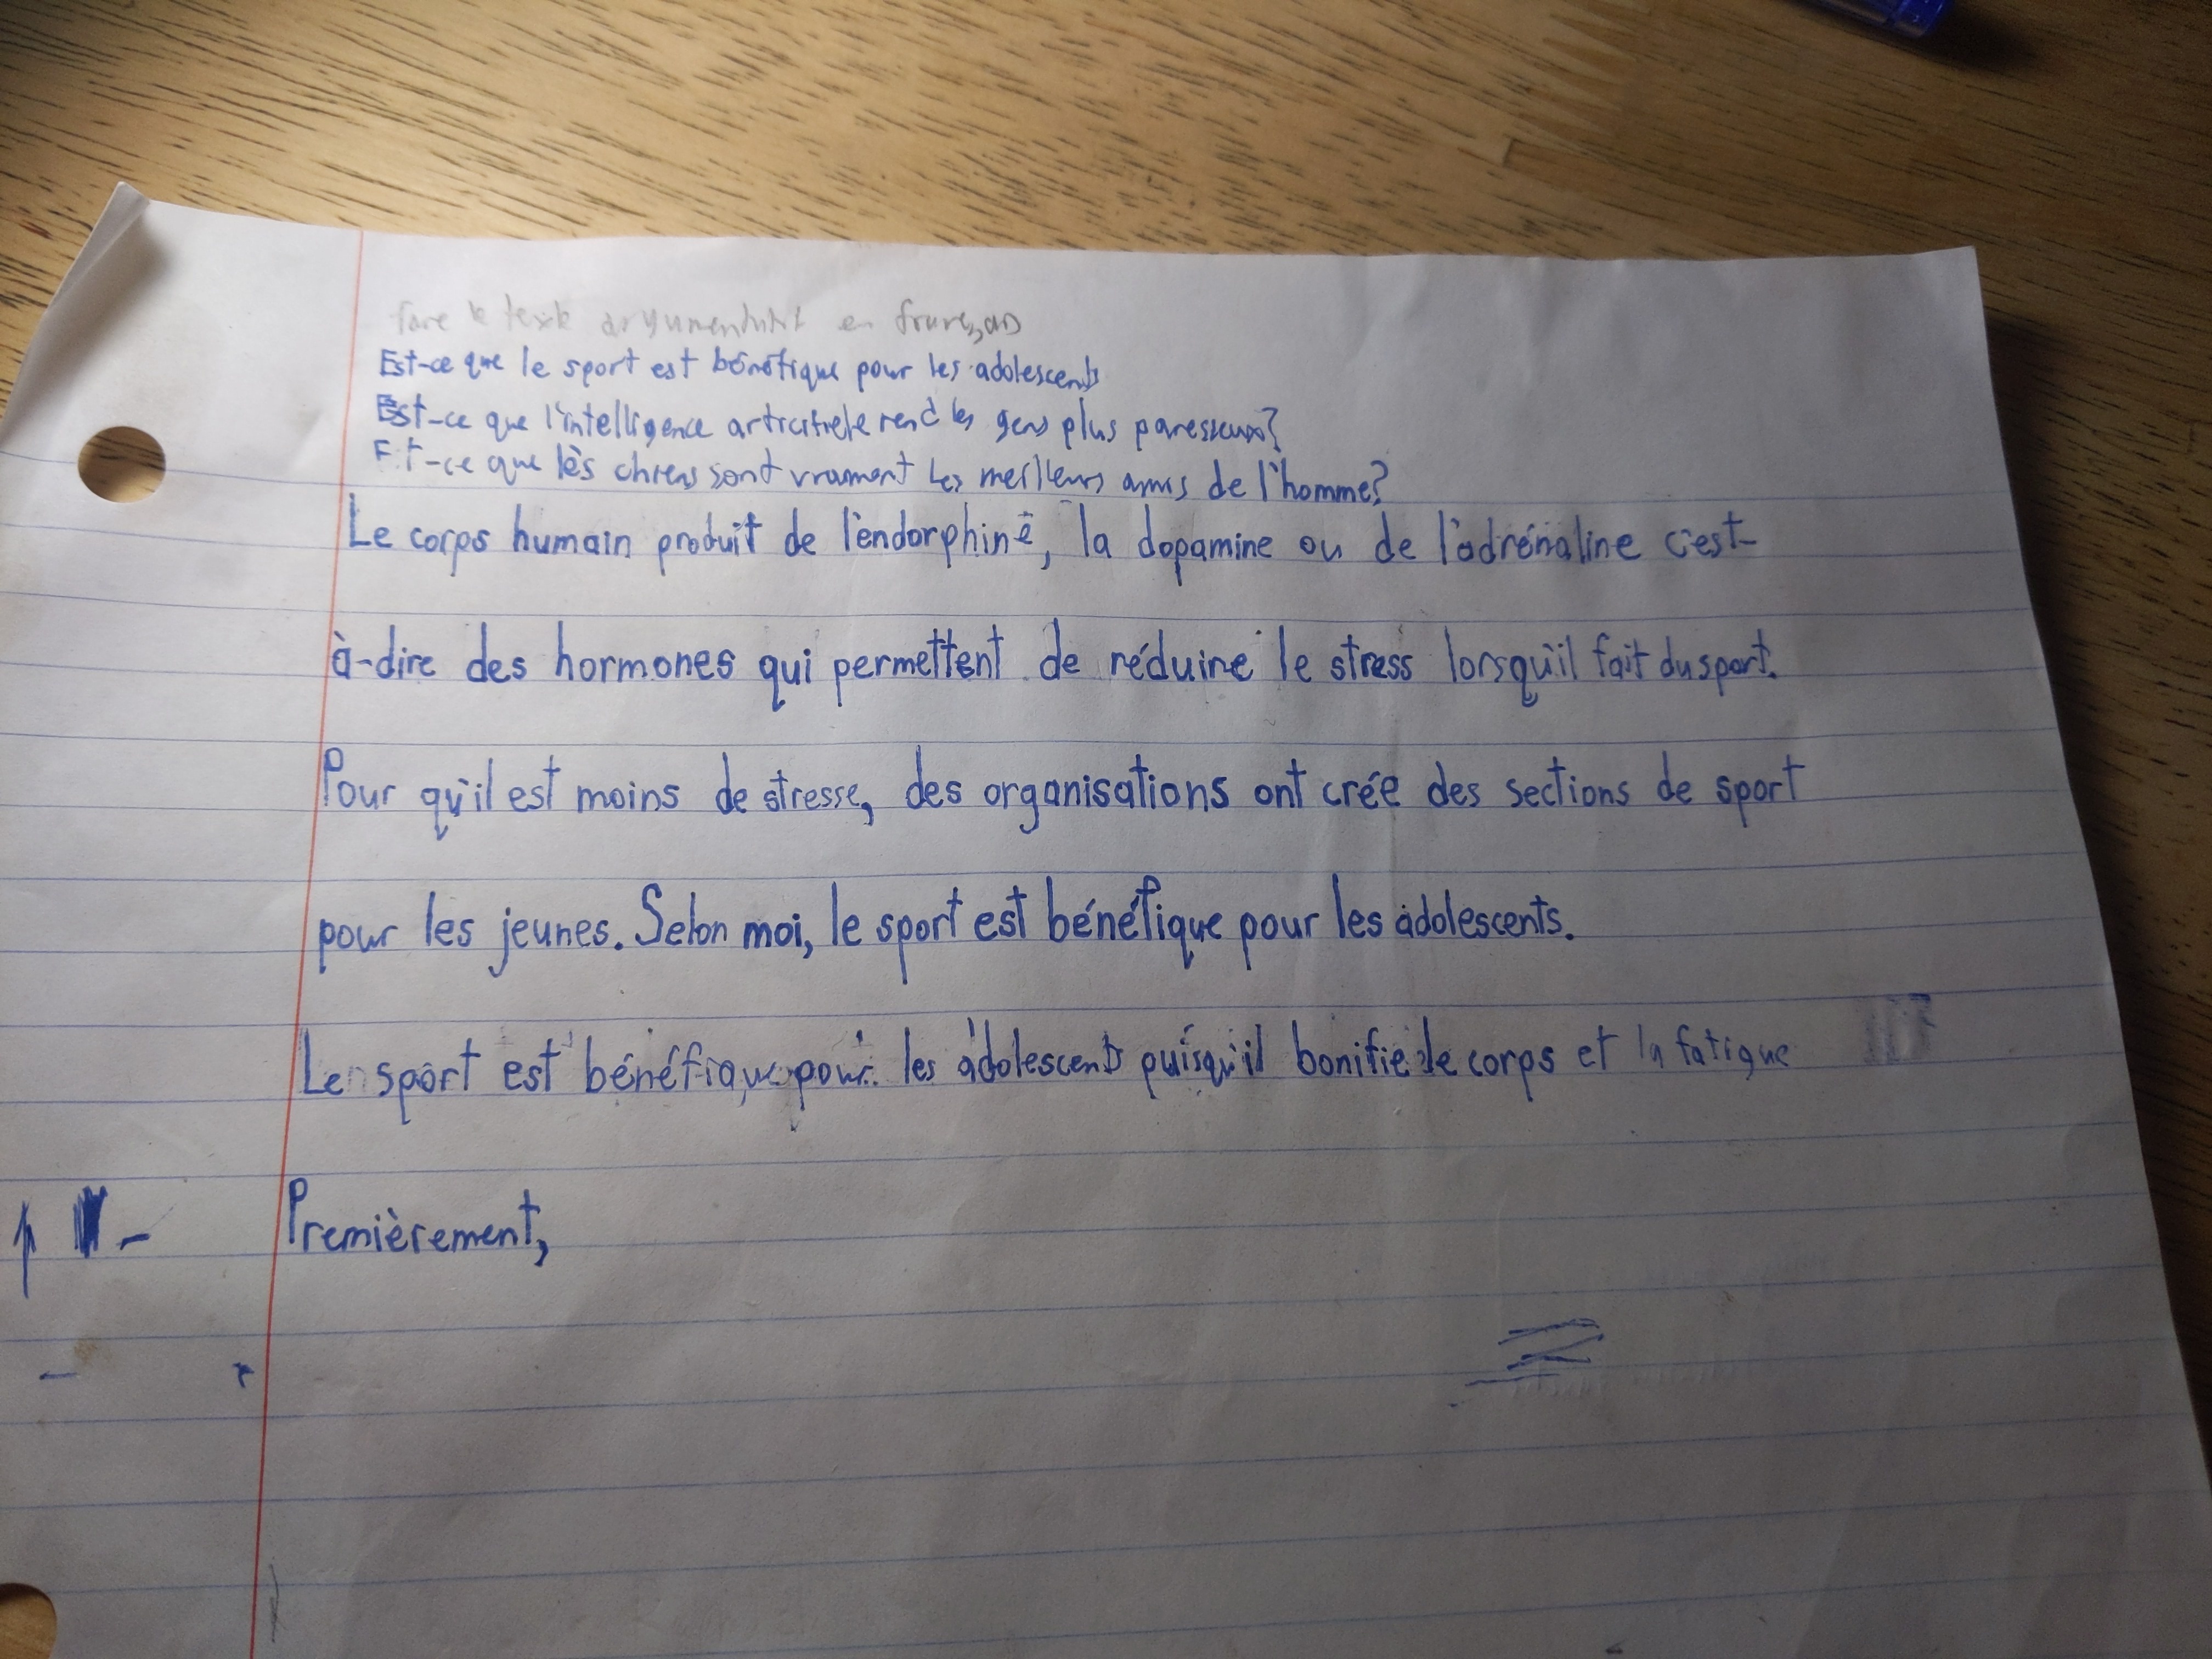 faire le texte argumentatif en français
Est-ce que le sport est bénéfique pour les adolescents
Est-ce que l'intelligence articifiele rend les gens plus paresseux?
Est-ce que les chiens sont vraiment les meilleurs amis de l'homme?
Le corps humain produit de l'endorphine, la dopamine ou de l'adrénaline c'est-
à-dire des hormones qui permettent de réduire le stress lorsqu'il fait du sport.
Pour qu'il est moins de stresse, des organisations ont crée des sections de sport
pour les jeunes. Selon moi, le sport est bénéfique pour les adolescents.
Le sport est bénéfique pour les adolescents puisqu'il bonifie le corps et la fatigue
Premièrement,